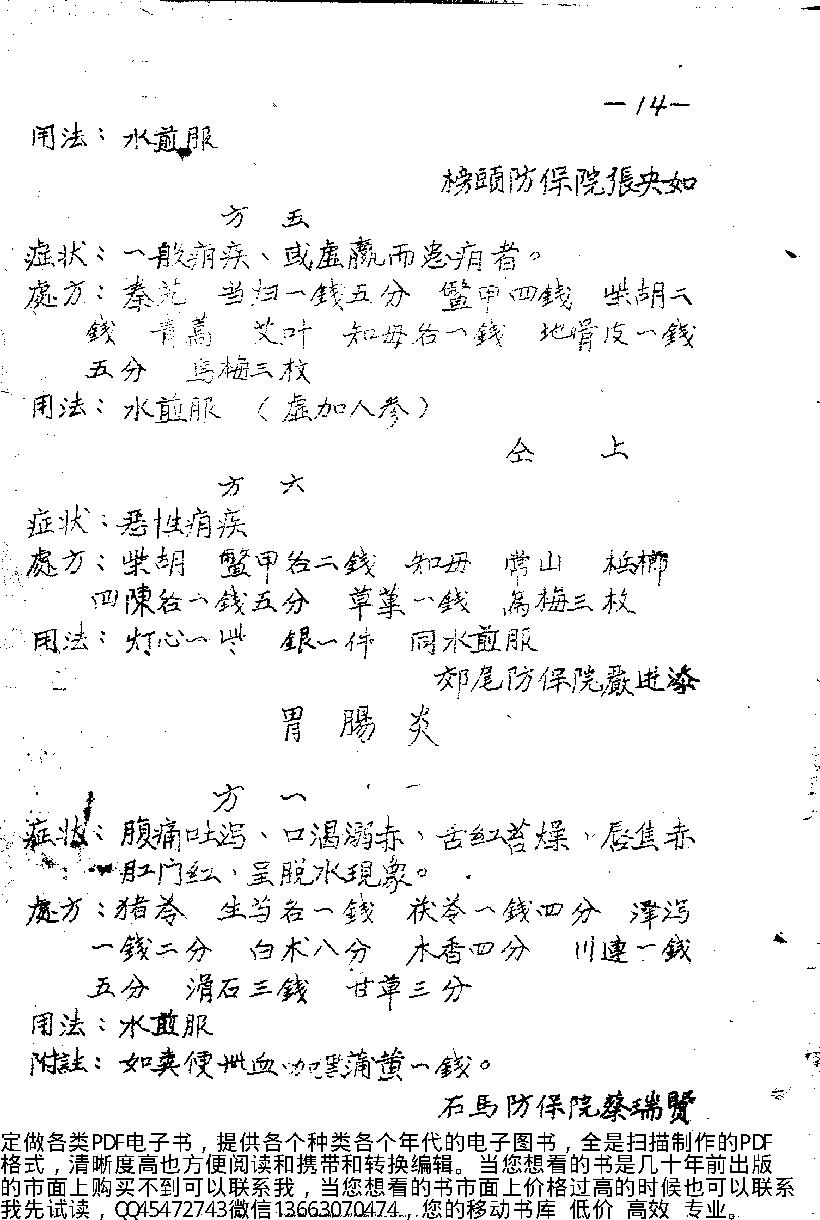 —14—
用法：水煎服
榜頭防保院張央如
方 五
症状：一般痟疾、或虚羸而患痟者。
處方：秦艽 当归一錢五分 鱉甲四錢 柴胡二
錢 青蒿 艾叶 知母各一錢 地骨皮一錢
五分 烏梅三枚
用法：水煎服 （虛加人參）
仝 上
方 六
症状：恶性痟疾
處方：柴胡 鱉甲各二錢 知母 常山 梹榔
四陳各一錢五分 草菓一錢 烏梅三枚
用法：灯心一 銀一件 同水煎服
郊尾防保院嚴进
胃 腸 炎
方 一
症状：腹痛吐泻、口渴溺赤、舌红苔燥、唇焦赤
肛门红、呈脱水現象。
處方：猪苓 生芍各一錢 茯苓一錢四分 澤泻
一錢二分 白术八分 木香四分 川連一錢
五分 滑石三錢 甘草三分
用法：水煎服
附註：如粪便出血加黑蒲黄一錢。
石馬防保院蔡瑞賢
定做各类PDF电子书，提供各个种类各个年代的电子图书，全是扫描制作的PDF
格式，清晰度高也方便阅读和携带和转换编辑。当您想看的书是几十年前出版
的市面上购买不到可以联系我，当您想看的书市面上价格过高的时候也可以联系
我先试读，QQ45472743微信13663070474，您的移动书库 低价 高效 专业。